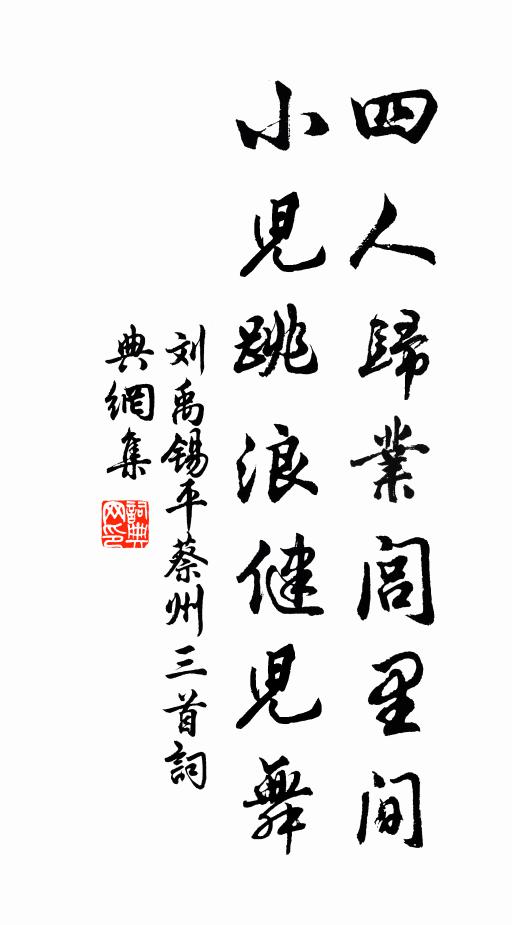 四人歸業閭里間
小兒跳浪健兒舞
刘禹锡平蔡州三首詞
典網集
詞典网印